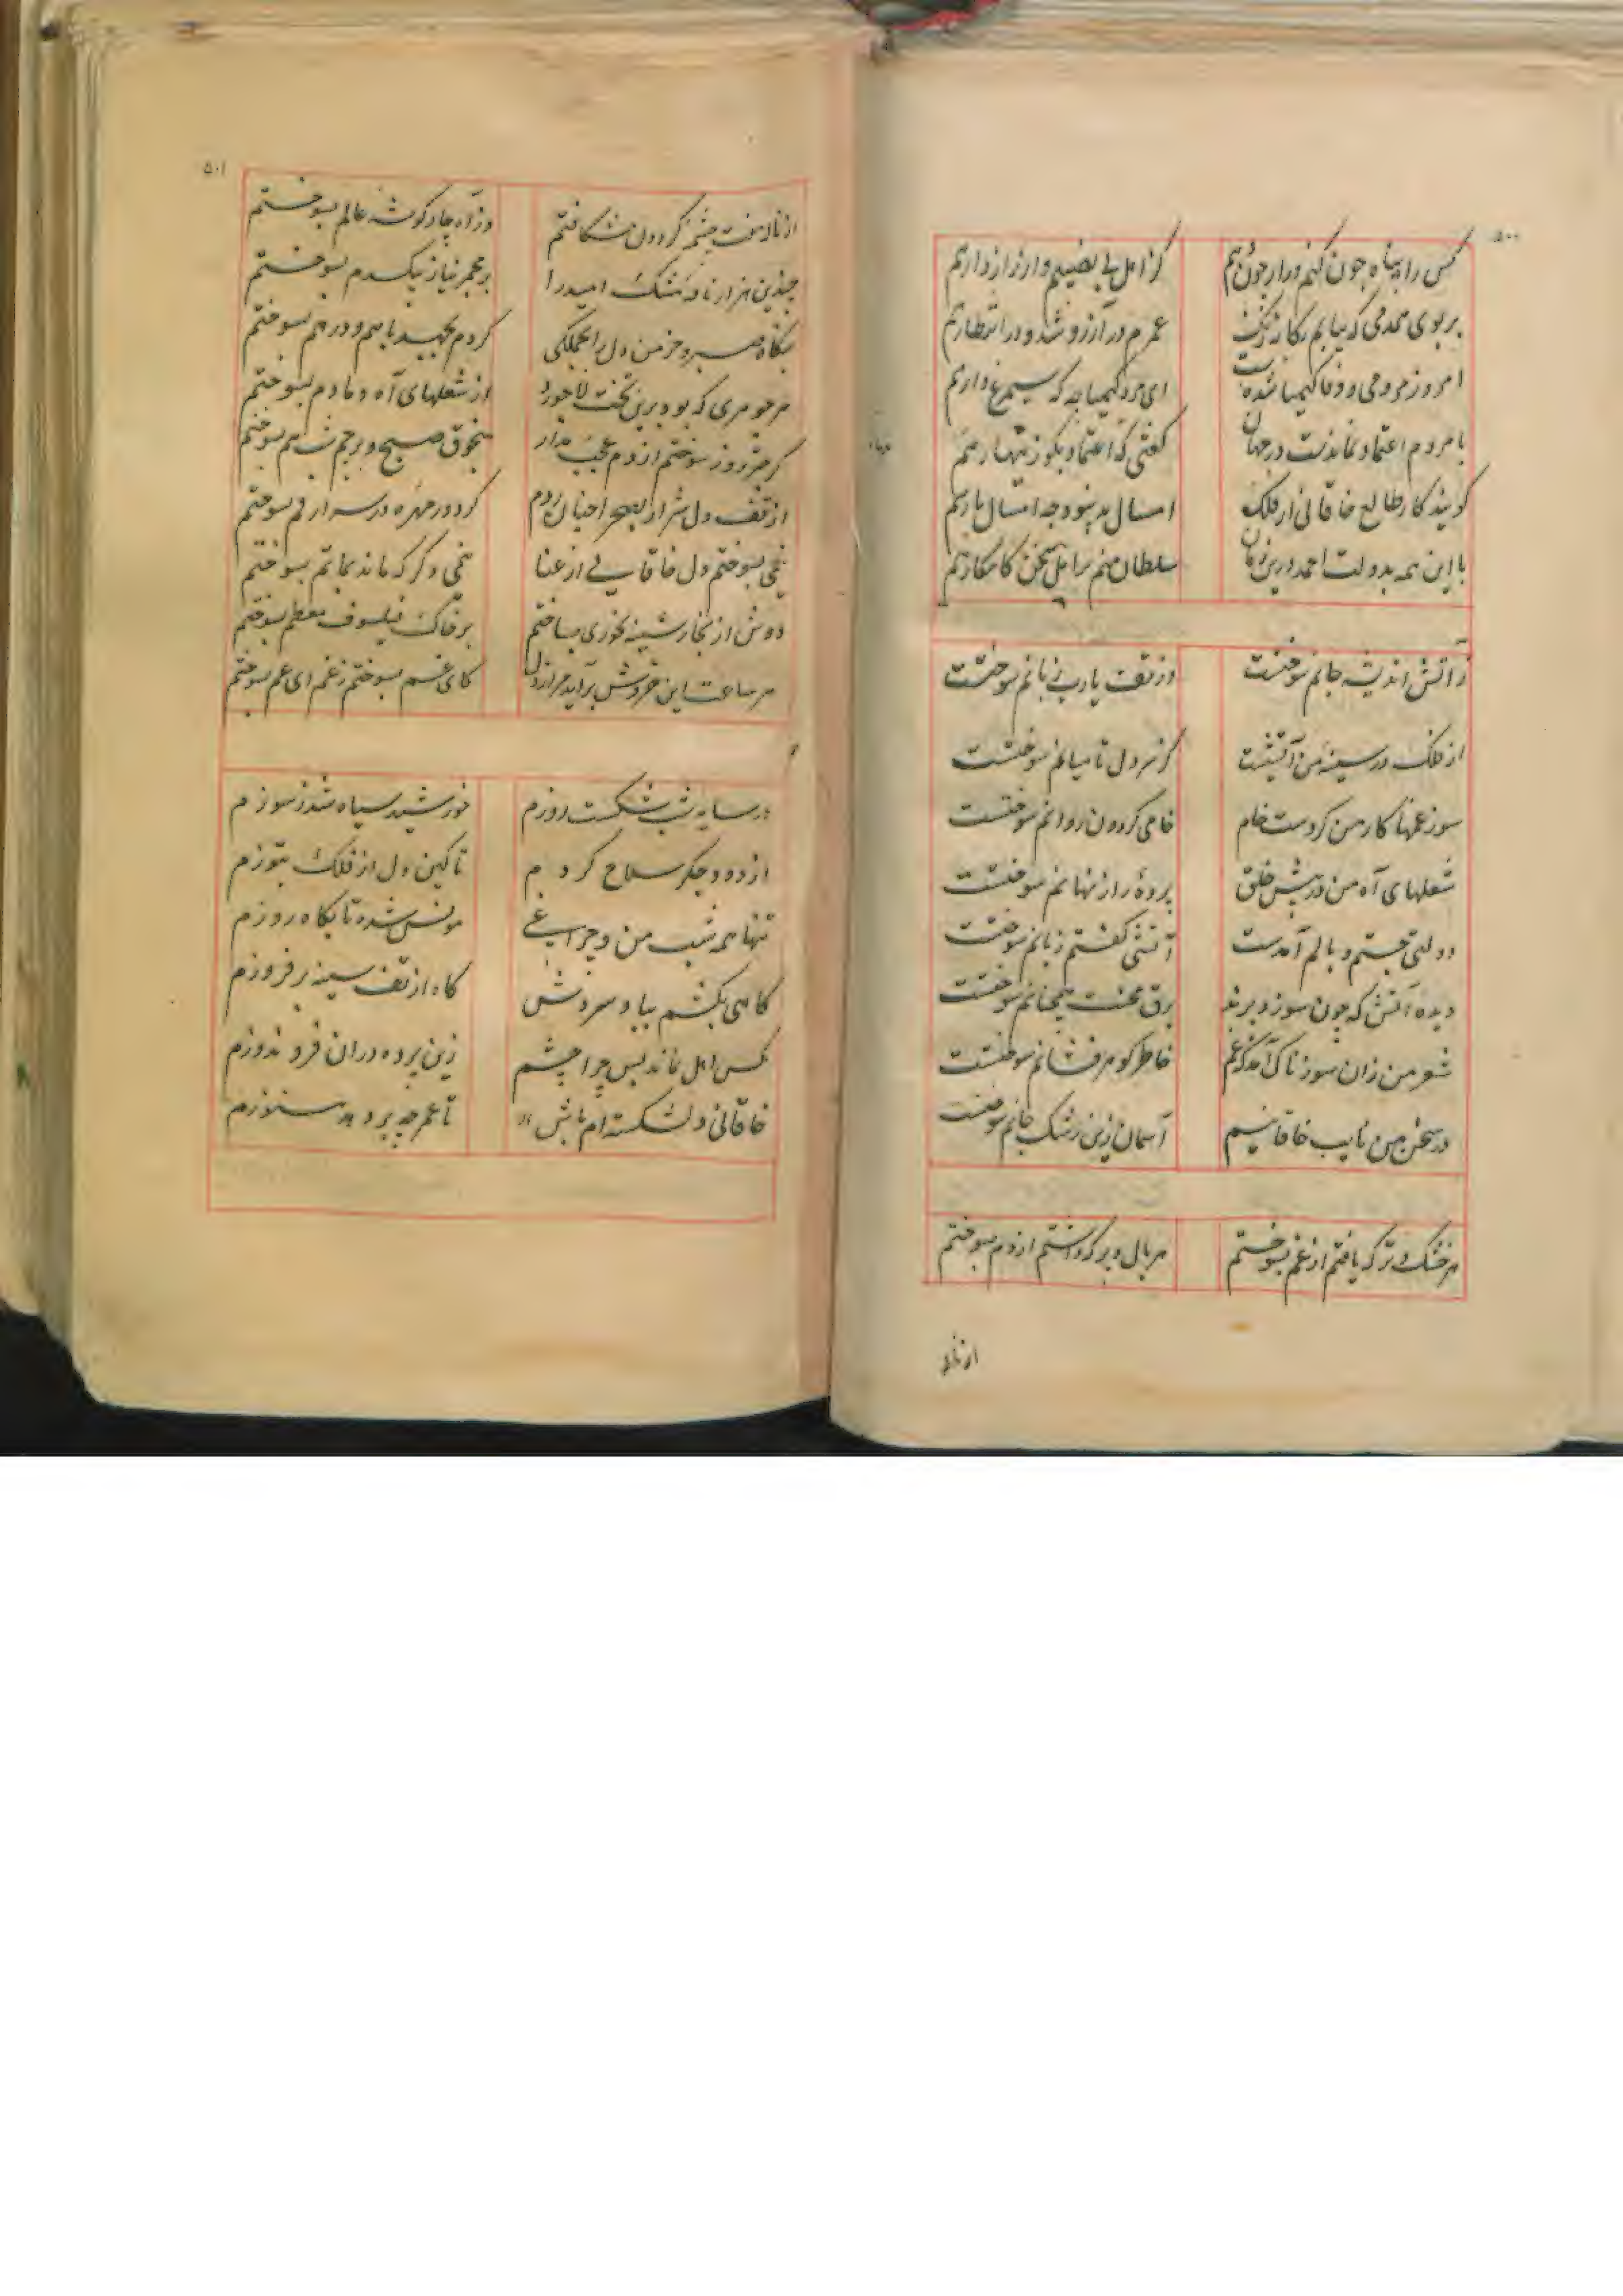 ۵۰۰
کس را پناه چون کنم و راز چون دهم
کز اهل بی نصیبم و از راز دارهم
بر بوی همدمی که بیابم یکانه رنک
عمرم در آرزو شد و در انتظارهم
امروز مردمی و وفا کیمیا شده است
ای مرد کیمیا چه که سیمرغ دارهم
با مردم اعتماد نماندست در جهان
کفتی که اعتماد مکو زینهارهم
کویند کار طالع خاقانی از فلک
امسال بد نبود چه امسال پارهم
با این همه بدولت احمد درین زمان
سلطان منم بر اهل سخن کامکارهم
زآتش اندیشه جانم سوختست
وز تف یارب زبانم سوختست
از فلک در سینهٔ من آتشیست
کز سر دل تا میانم سوختست
سوز غمها کار من کردست خام
خامی کردون روانم سوختست
شعلهای آه من در پیش خلق
پردهٔ راز نهانم سوختست
دولتی جستم وبالم آمدست
آتشی کفتم زبانم سوختست
دیده آتش که چون سوزد پرند
برق محنت همچنانم سوختست
شعر من زان سوزناک آمد که غم
خاطر کوهر فشانم سوختست
در سخن من نایب خاقانیم
آسمان زین رشک جانم سوختست
هر خشک و تر که یافتم از غم بسوختم
هر بال و پر که داشتم از دم بسوختم
از ناله
۵۰۱
از ناله هفت چشم کردون شکافتم
وز آه چار کوشه عالم بسوختم
چندین هزار نافه مشک امید را
بر مجمر نیاز بیکدم بسوختم
بنکاه صبر و خرمن دل را بجملکی
کردم بجهد با هم و در هم بسوختم
هر جوهری که بود برین تخت لاجورد
از شعلهای آه دمادم بسوختم
کر چتر روز سوختم از دم عجب مدار
منجوق صبح و پرچم شب هم بسوختم
از تف دل شرار بصحرا چنان زدم
نیمی بسوختم دل خاقانی از عنا
نیمی دکر که ماند بماتم بسوختم
دوش از بخار سینه بخوری بساختم
بر خاک فیلسوف معظم بسوختم
هر ساعت این خروش برآید مرا ز دل
کای عم بسوختم ز غم ای عم بسوختم
در سایه شب شکست روزم
خورشید سیاه شد ز سوزم
از دود جکر سلاح کردم
تا کین دل از فلک بتوزم
تنها همه شب من و چراغی
مونس شده تا بکاه روزم
کاهی بکشم بباد سردش
کاه از تف سینه بر فروزم
یکس اهل نماند پس چرا چشم
زین پرده دران فرو ندوزم
خاقانی دلشکسته‌ام باش
تا عمر چه بر دهد هنوزم